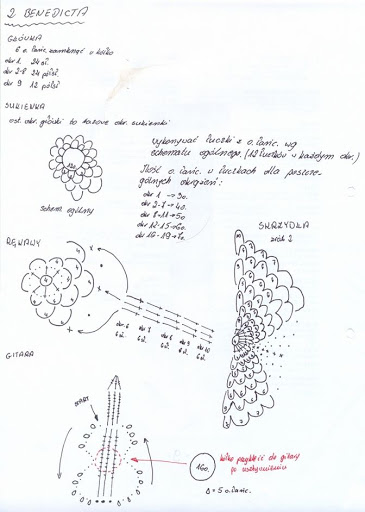 2 BENEDICTA
GŁÓWKA
6 o. łańc. zamknąć w kółko
okr 1 24 sł.
okr 2-8 24 półsł.
okr 9 12 półsł
SUKIENKA
ost. okr. główki to 1 okr. sukienki
wykonywać łuczki z o. łańc. wg
schematu ogólnego. (12 łuczków w każdym okr.)
Ilość o. łańc. w łuczkach dla poszcze-
gólnych okrążeń:
okr 1 → 3o.
okr 2-7 → 4o.
okr 8-11 → 5o
okr 12-15 → 6o.
okr 16-19 → 7o.
schemat ogólny
SKRZYDŁA
zrób 2
RĘKAWY
okr. 6 okr 7 okr 8 okr 9 okr 10
6 sł. 6 sł. 6 sł. 6 sł. 6 sł.
GITARA
START
kółko przykleić do gitary
po usztywnieniu
16o.
= 5 o. łańc.